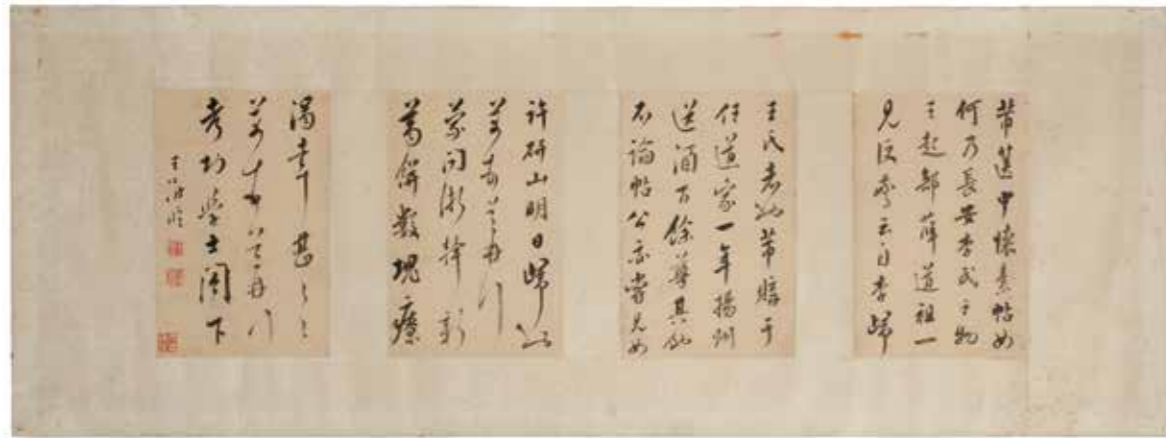 芾篋中懷素帖如
何乃長安李氏之物
王起部薛道祖一
見便驚云自李歸
王氏者也芾購于
任道家一年揚州
送酒百餘尊其他
不論帖公亦嘗見如
許研山明日歸以
蒙閒漸擇新
餅數塊療
渴幸甚甚
考功學士閣下
王